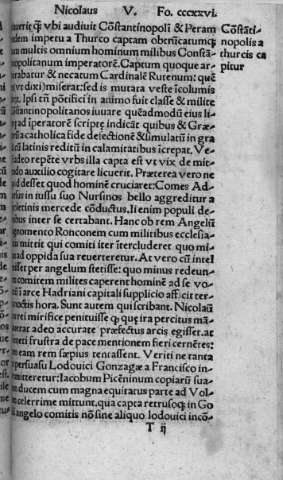 Nicolaus V. Fo. cccxxvi.
uerit ꝙ̃ vbi audiuit Cõstantinopoli & Peram
dem impetu a Thurco captam obtrũcatumq́;
multis omnium hominum milibus Constã
opolitanum imperatorẽ. Captum quoque ar-
rabatur & necatum Cardinalẽ Rutenum: quẽ
vt dixi) miserat: sed is mutata veste ĩcolumis
Ipsũ cñ põtifici in animo fuit classe & milite
stantinopolitanos iuuare quẽadmodũ eius li-
ad ĩperatorẽ scripte indicãt quibus & Græ-
a catholica fide defectionẽ & simulatũ in gra
latinis reditũ in calamitatibus ĩcrepat. Ve-
adeo repẽte vrbs illa capta est vt vix de mit-
do auxilio cogitare licuerit. Præterea vero ne
ad desset quod hominẽ cruciaret: Comes Ad-
in iussu suo Nursinos bello aggreditur a
oletinis mercede cõductus. Ii enim populi de
bus inter se certabant. Hanc ob rem Angelũ
gnomento Ronconem cum militibus ecclesia-
mittit qui comiti iter ĩtercluderet quo mi-
ad oppida sua reuerteretur. At vero cũ intel
isset per angelum stetisse: quo minus redeun-
comitem milites caperent hominẽ ad se vo-
ĩ arce Hadriani capitali supplicio afficit ter-
noctis hora. Sunt autem qui scribant. Nicolaũ
rei mirifice penituisse ꝙ que ira percitus mã-
rat adeo accurate præfectus arcis egisset. at
frustra de pace mentionem fieri cernẽres:
eam rem sæpius tentassent. Veriti ne tanta
persuasu Lodouici Gonzagæ a Francisco in-
mitteretur: Iacobum Picẽninum copiarũ sua-
ducem cum magna equitatus parte ad Vol-
celerrime mittunt. qua capta retrusoq́; in Go
angelo comitis nõ sine aliquo lodouici incõ-
T ij
Cõstãti-
nopolis a
thurcis ca
pitur